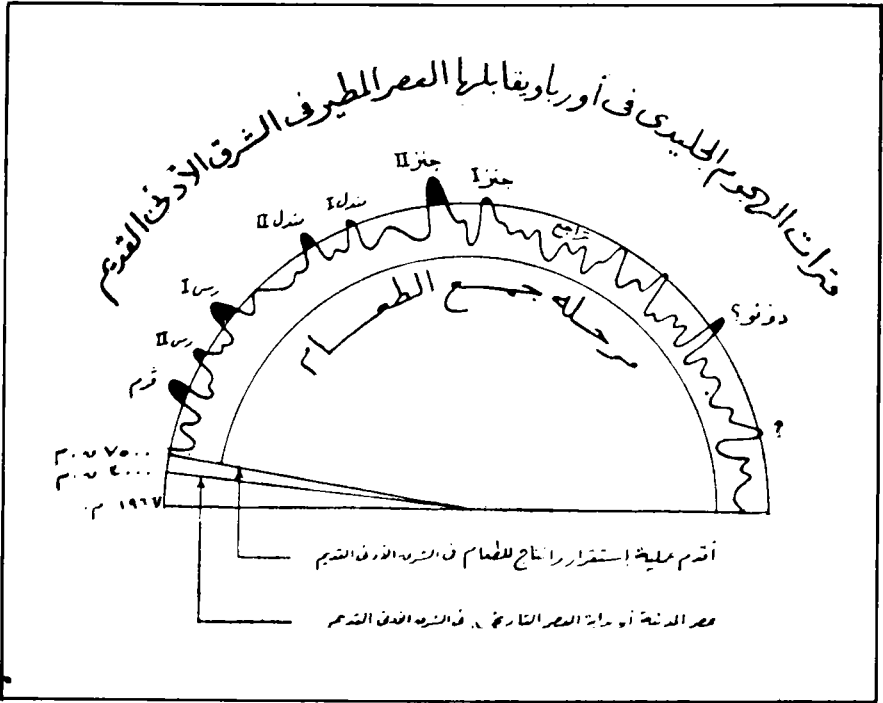 فترات الهجوم الجليدى فى أوربا ويقابلها العصر المطير فى الشرق الأدنى القديم
جنز II
جنز I
مندل I
مندل II
تراجع
رس I
دونو ؟
رس II
مرحله جمع الطعام
ڤرم
؟
٧٥٠٠ ق.م
٣٠٠٠ ق.م
١٩٦٧ م.
أقدم عملية إستقرار وانتاج للطعام فى الشرق الأدنى القديم
عصر المدنية أو بداية العصر التاريخى فى الشرق الادنى القديم